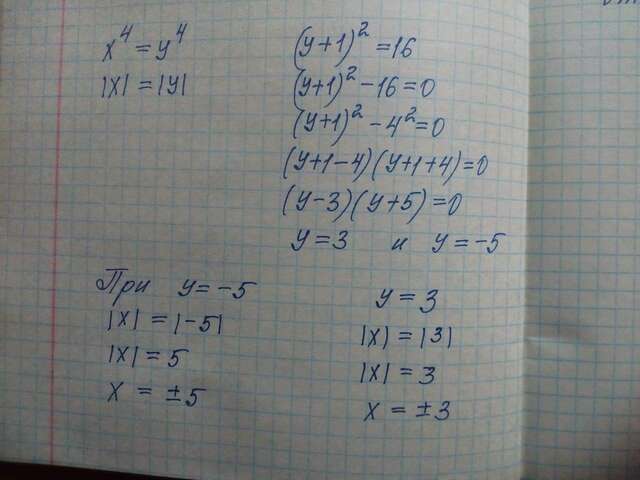 x⁴ = y⁴
|x| = |y|
(y+1)² = 16
(y+1)² - 16 = 0
(y+1)² - 4² = 0
(y+1-4)(y+1+4) = 0
(y-3)(y+5) = 0
y = 3 и y = -5
При y = -5
|x| = |-5|
|x| = 5
x = ±5
y = 3
|x| = |3|
|x| = 3
x = ±3